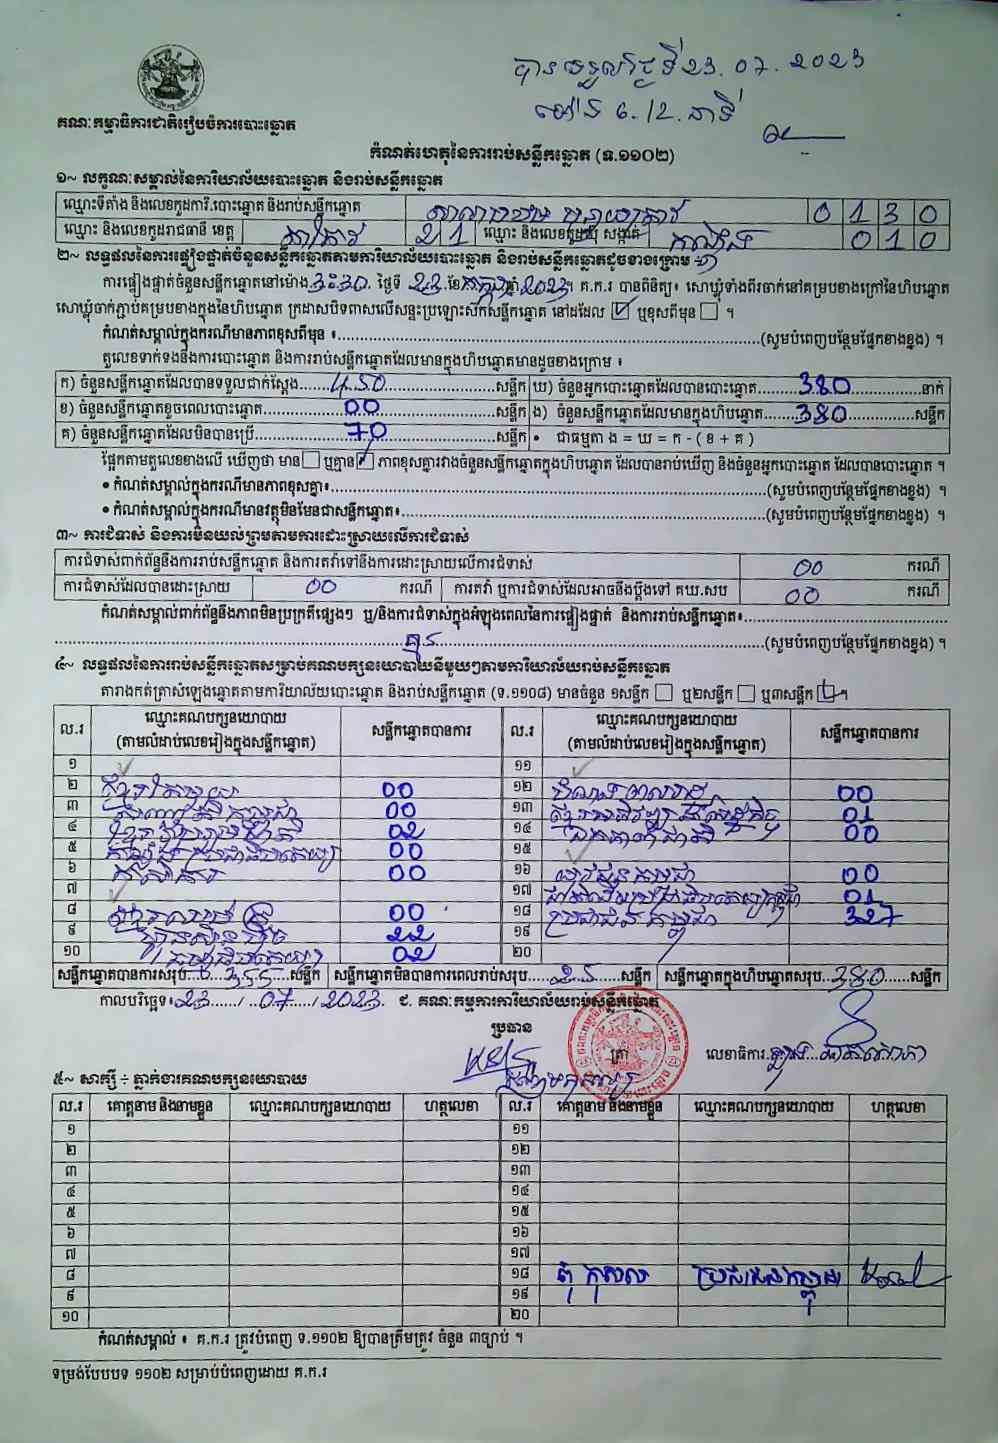 បានទទួលថ្ងៃទី 23.07.2023
ម៉ោង 6.12.នាទី
គណៈកម្មាធិការជាតិរៀបចំការបោះឆ្នោត
កំណត់ហេតុនៃការរាប់សន្លឹកឆ្នោត (ទ.១១០២)
១~ លក្ខណៈសម្គាល់នៃការិយាល័យបោះឆ្នោត និងរាប់សន្លឹកឆ្នោត
ឈ្មោះទីតាំង និងលេខកូដការិ.បោះឆ្នោត និងរាប់សន្លឹកឆ្នោត 0 1 3 0
ឈ្មោះ និងលេខកូដរាជធានី ខេត្ត តាកែវ 2 1 ឈ្មោះ និងលេខកូដឃុំ សង្កាត់ 0 1 0
២~ លទ្ធផលនៃការផ្ទៀងផ្ទាត់ចំនួនសន្លឹកឆ្នោតតាមការិយាល័យបោះឆ្នោត និងរាប់សន្លឹកឆ្នោតដូចខាងក្រោម ៖
ការផ្ទៀងផ្ទាត់ចំនួនសន្លឹកឆ្នោតនៅម៉ោង 3:30. ថ្ងៃទី 23 ខែ កក្កដា ឆ្នាំ 2023។ គ.ក.រ បានពិនិត្យ៖ សោឃ្លុំទាំងពីរចាក់នៅគម្របខាងក្រៅនៃហិបឆ្នោត
សោឃ្លុំចាក់ភ្ជាប់គម្របខាងក្នុងនៃហិបឆ្នោត ក្រដាសបិទពាសលើសន្ទះប្រឡោះសឹកសន្លឹកឆ្នោត នៅដដែល ☑ ឬខុសពីមុន ☐ ។
កំណត់សម្គាល់ក្នុងករណីមានភាពខុសពីមុន ៖...(សូមបំពេញបន្ថែមផ្នែកខាងខ្នង) ។
តួលេខទាក់ទងនឹងការបោះឆ្នោត និងការរាប់សន្លឹកឆ្នោតដែលមានក្នុងហិបឆ្នោតមានដូចខាងក្រោម ៖
ក) ចំនួនសន្លឹកឆ្នោតដែលបានទទួលជាក់ស្ដែង...450...សន្លឹក ឃ) ចំនួនអ្នកបោះឆ្នោតដែលបានបោះឆ្នោត...380...នាក់
ខ) ចំនួនសន្លឹកឆ្នោតខូចពេលបោះឆ្នោត...00...សន្លឹក ង) ចំនួនសន្លឹកឆ្នោតដែលមានក្នុងហិបឆ្នោត...380...សន្លឹក
គ) ចំនួនសន្លឹកឆ្នោតដែលមិនបានប្រើ...70...សន្លឹក • ជាធម្មតា ង = ឃ = ក - ( ខ + គ )
ផ្អែកតាមតួលេខខាងលើ ឃើញថា មាន ☐ ឬគ្មាន ☑ ភាពខុសគ្នារវាងចំនួនសន្លឹកឆ្នោតក្នុងហិបឆ្នោត ដែលបានរាប់ឃើញ និងចំនួនអ្នកបោះឆ្នោត ដែលបានបោះឆ្នោត ។
• កំណត់សម្គាល់ក្នុងករណីមានភាពខុសគ្នា៖...(សូមបំពេញបន្ថែមផ្នែកខាងខ្នង) ។
• កំណត់សម្គាល់ក្នុងករណីមានវត្ថុមិនមែនជាសន្លឹកឆ្នោត៖...(សូមបំពេញបន្ថែមផ្នែកខាងខ្នង) ។
៣~ ការជំទាស់ និងការមិនយល់ព្រមតាមការដោះស្រាយលើការជំទាស់
ការជំទាស់ពាក់ព័ន្ធនឹងការរាប់សន្លឹកឆ្នោត និងការតវ៉ាទៅនឹងការដោះស្រាយលើការជំទាស់ 00 ករណី
ការជំទាស់ដែលបានដោះស្រាយ 00 ករណី ការតវ៉ា ឬការជំទាស់ដែលអាចនឹងប្ដឹងទៅ គឃ.សប 00 ករណី
កំណត់សម្គាល់ពាក់ព័ន្ធនឹងភាពមិនប្រក្រតីផ្សេងៗ ឬ/និងការជំទាស់ក្នុងអំឡុងពេលនៃការផ្ទៀងផ្ទាត់ និងការរាប់សន្លឹកឆ្នោត៖...
...គ្មាន...(សូមបំពេញបន្ថែមផ្នែកខាងខ្នង) ។
៤~ លទ្ធផលនៃការរាប់សន្លឹកឆ្នោតសម្រាប់គណបក្សនយោបាយនីមួយៗតាមការិយាល័យរាប់សន្លឹកឆ្នោត
តារាងកត់ត្រាសំឡេងឆ្នោតតាមការិយាល័យបោះឆ្នោត និងរាប់សន្លឹកឆ្នោត (ទ.១១០៨) មានចំនួន ១សន្លឹក ☐ ឬ២សន្លឹក ☐ ឬ៣សន្លឹក ☑។
ល.រ ឈ្មោះគណបក្សនយោបាយ (តាមលំដាប់លេខរៀងក្នុងសន្លឹកឆ្នោត) សន្លឹកឆ្នោតបានការ ល.រ ឈ្មោះគណបក្សនយោបាយ (តាមលំដាប់លេខរៀងក្នុងសន្លឹកឆ្នោត) សន្លឹកឆ្នោតបានការ
១ ១១
២ 00 ១២ 00
៣ 00 ១៣ 01
៤ 02 ១៤ ឯកភាពជាតិ 00
៥ 00 ១៥
៦ កសិករ 00 ១៦ យុវជនកម្ពុជា 00
៧ ១៧ 01
៨ 00 ១៨ ប្រជាជនកម្ពុជា 327
៩ ហ្វ៊ុនស៊ិនប៉ិច 22 ១៩
១០ 02 ២០
សន្លឹកឆ្នោតបានការសរុប...355...សន្លឹក សន្លឹកឆ្នោតមិនបានការពេលរាប់សរុប...25...សន្លឹក សន្លឹកឆ្នោតក្នុងហិបឆ្នោតសរុប...380...សន្លឹក
កាលបរិច្ឆេទ៖ 23 / 07 / 2023 ជ. គណៈកម្មការការិយាល័យរាប់សន្លឹកឆ្នោត
ប្រធាន
ត្រា លេខាធិការ
៥~ សាក្សី ÷ ភ្នាក់ងារគណបក្សនយោបាយ
ល.រ គោត្តនាម និងនាមខ្លួន ឈ្មោះគណបក្សនយោបាយ ហត្ថលេខា ល.រ គោត្តនាម និងនាមខ្លួន ឈ្មោះគណបក្សនយោបាយ ហត្ថលេខា
១ ១១
២ ១២
៣ ១៣
៤ ១៤
៥ ១៥
៦ ១៦
៧ ១៧
៨ ១៨ កុសល ប្រជាជនកម្ពុជា
៩ ១៩
១០ ២០
កំណត់សម្គាល់ ៖ គ.ក.រ ត្រូវបំពេញ ទ.១១០២ ឱ្យបានត្រឹមត្រូវ ចំនួន ៣ច្បាប់ ។
ទម្រង់បែបបទ ១១០២ សម្រាប់បំពេញដោយ គ.ក.រ